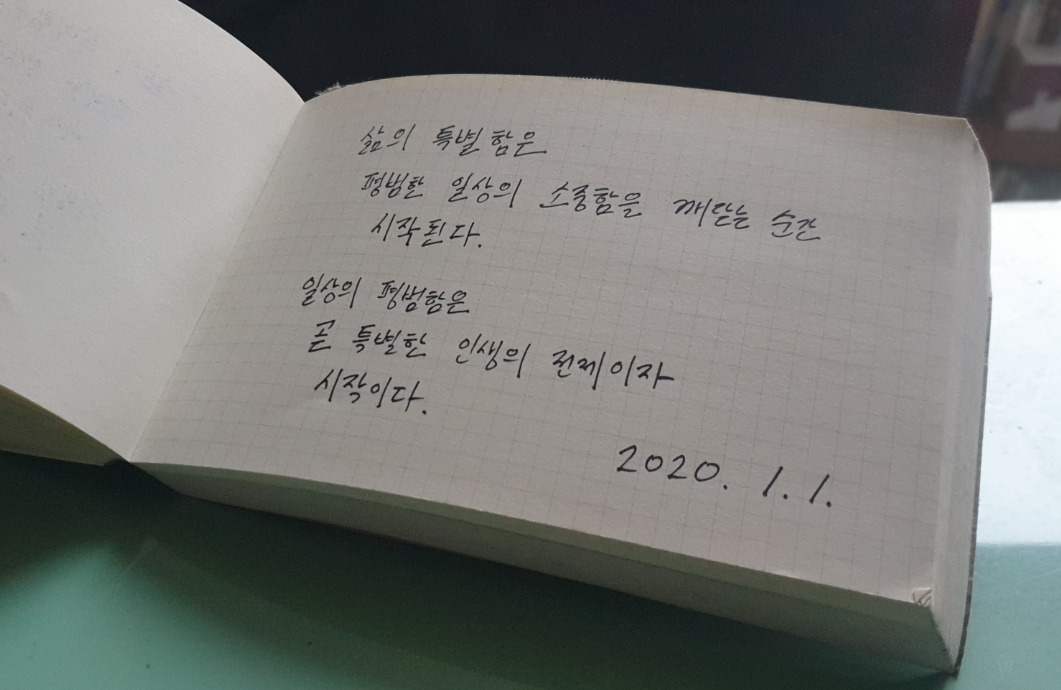 삶의 특별함은
평범한 일상의 소중함을 깨닫는 순간
시작된다.
일상의 평범함은
곧 특별한 인생의 전제이자
시작이다.
2020. 1. 1.